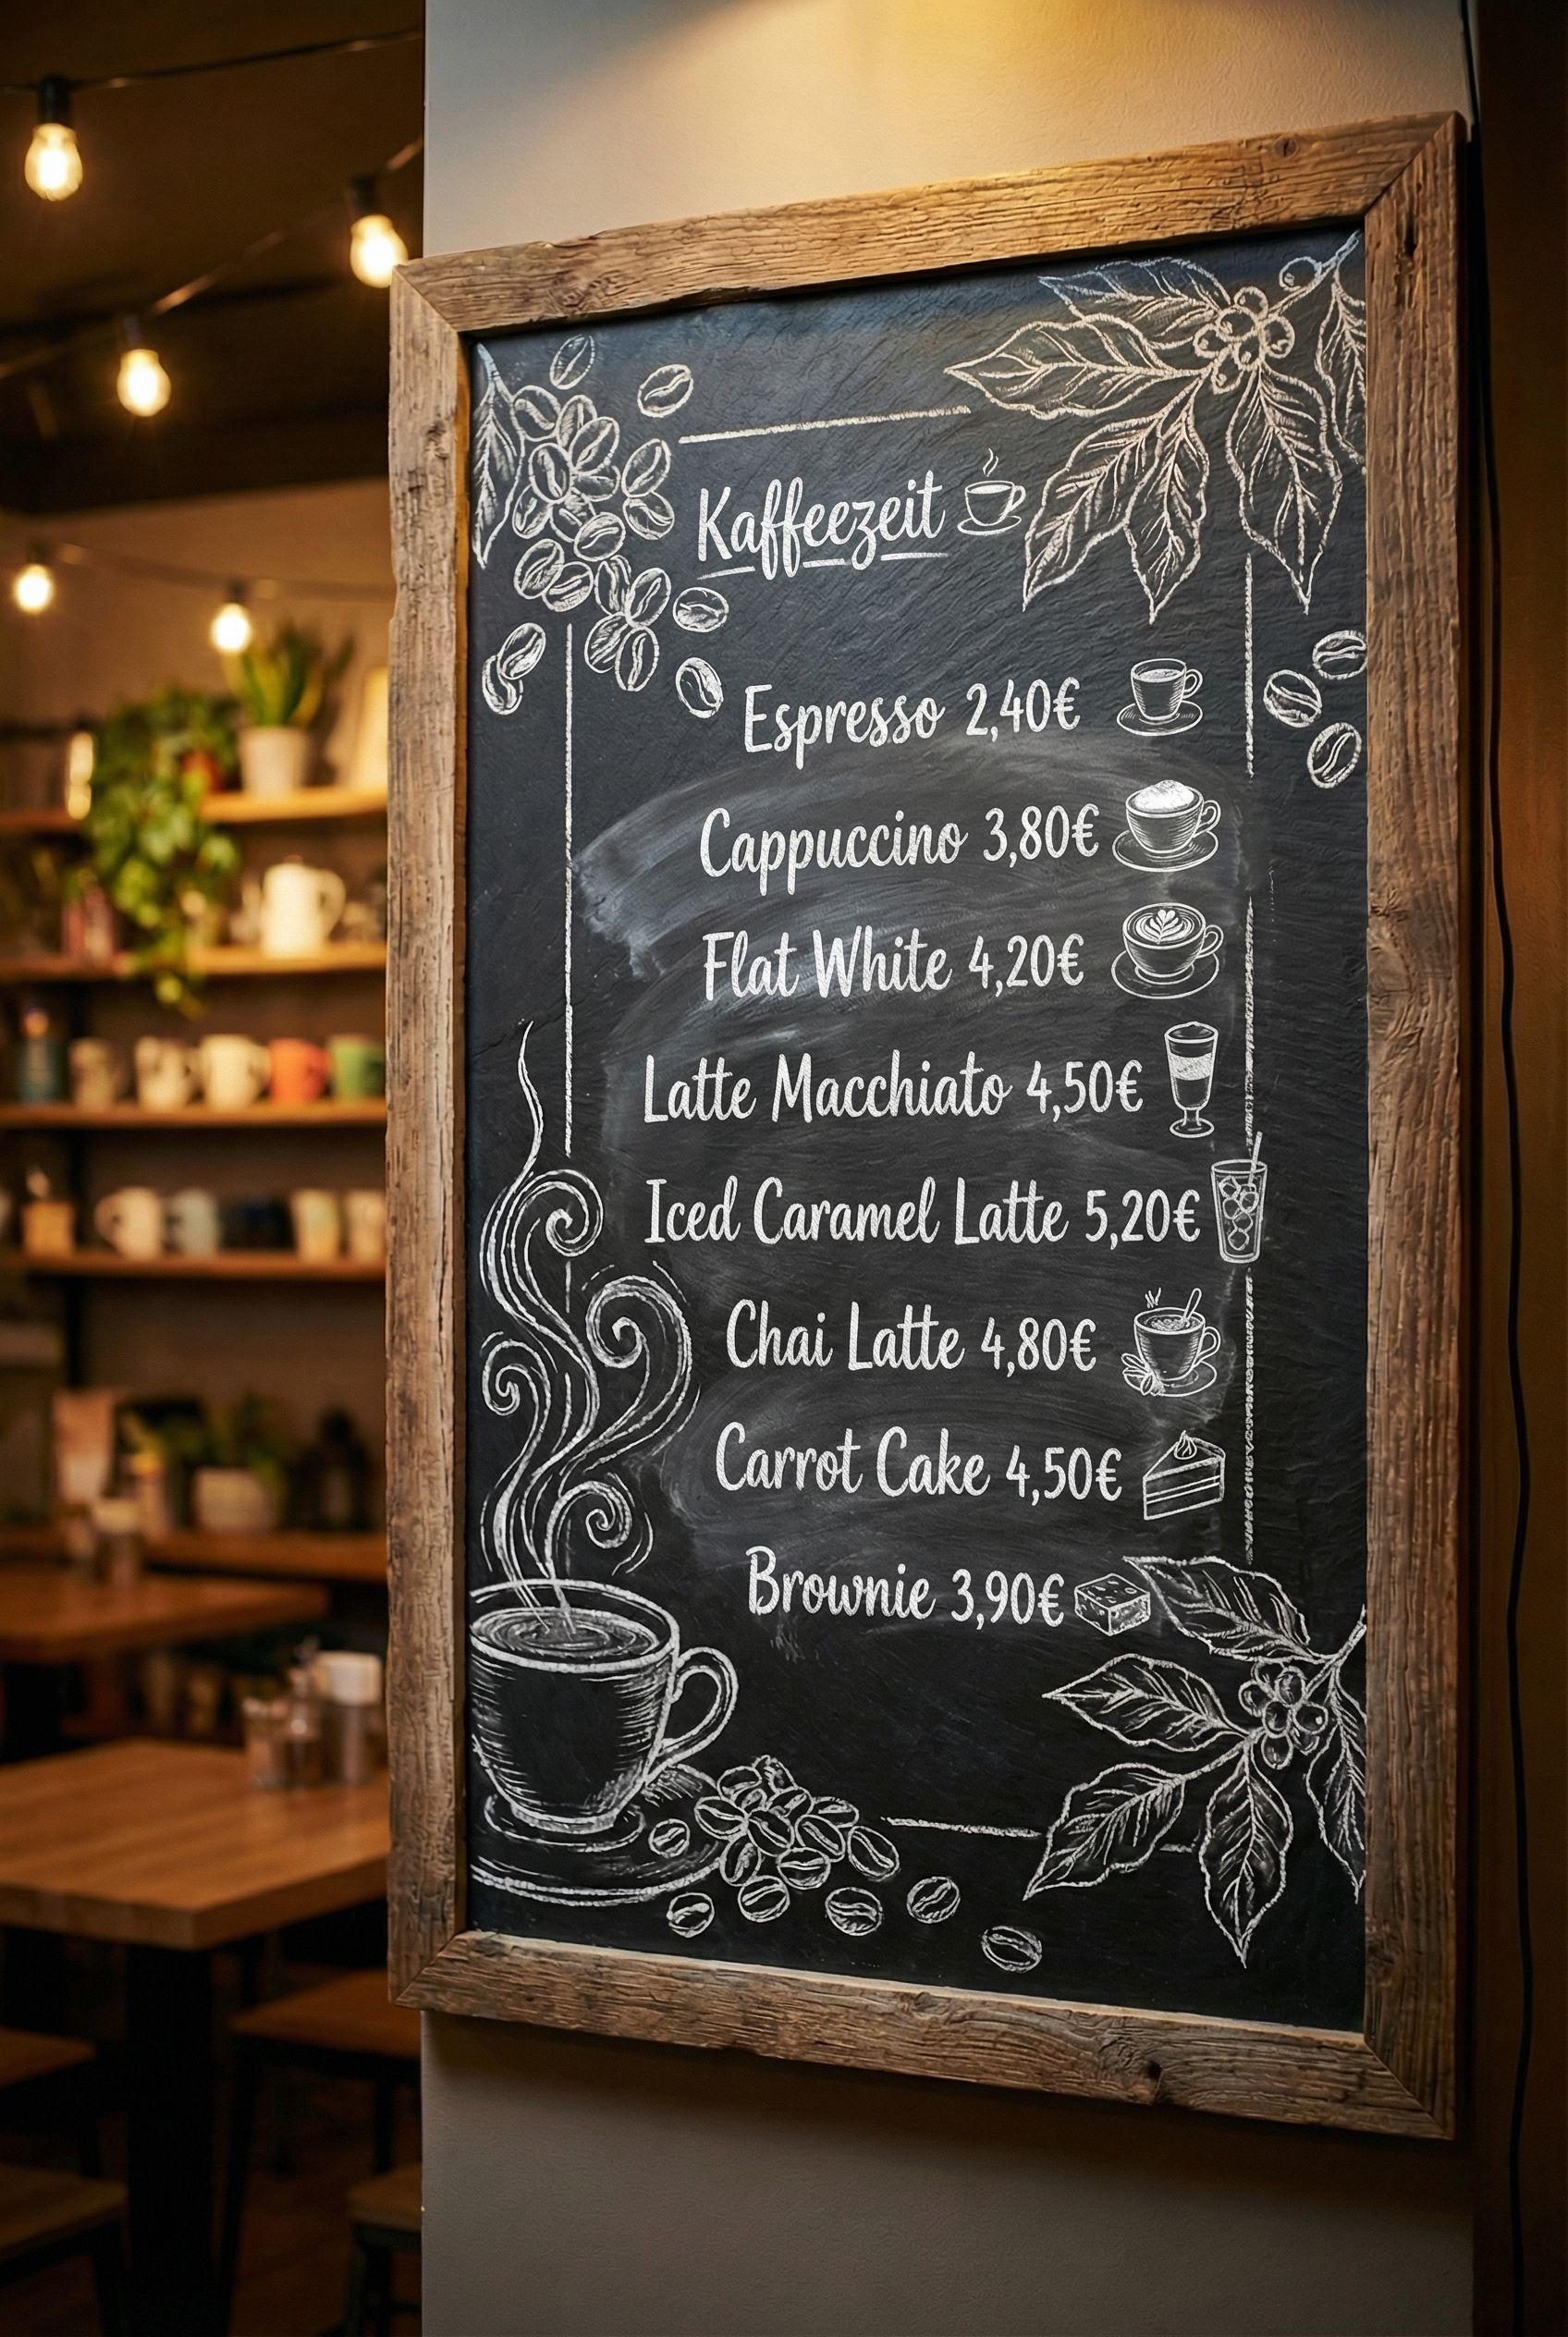 Kaffeezeit
Espresso 2,40€
Cappuccino 3,80€
Flat White 4,20€
Latte Macchiato 4,50€
Iced Caramel Latte 5,20€
Chai Latte 4,80€
Carrot Cake 4,50€
Brownie 3,90€